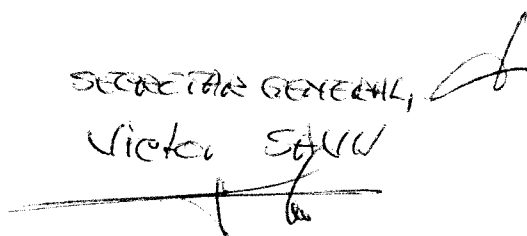 SECRETAR GENERAL,
Victor SAVIN